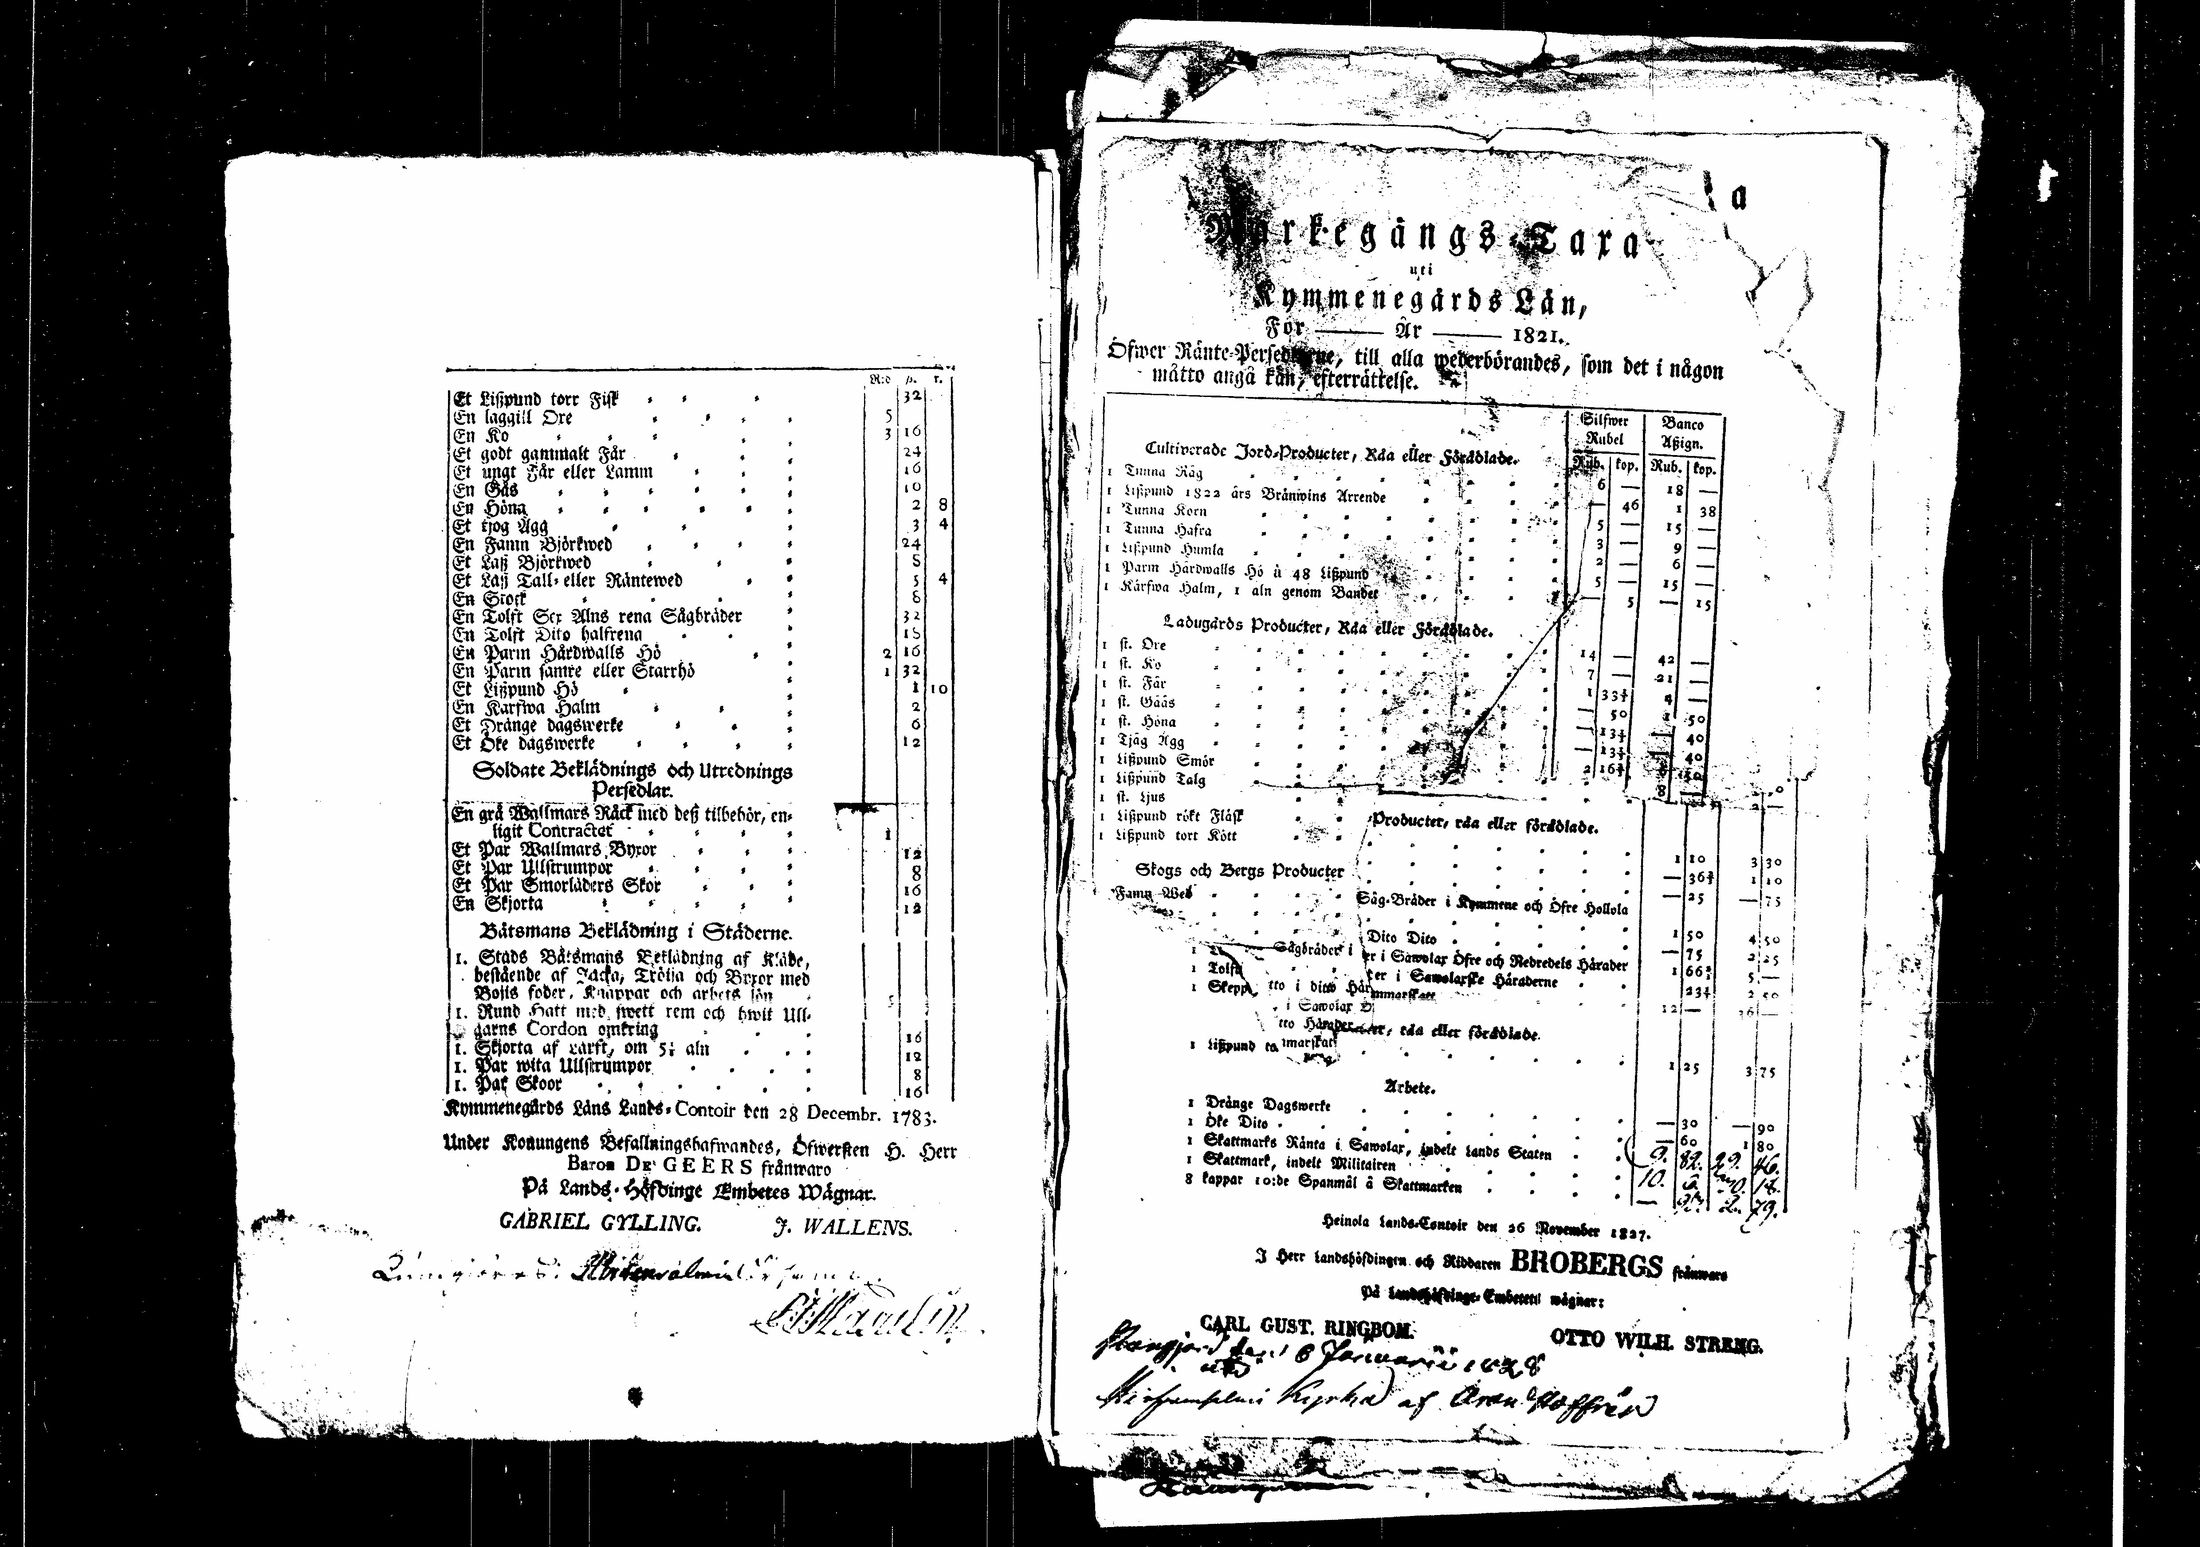 R:d ß. r.
Et Lißpund torr Fisk 32
En laggill Oxe 5
En Ko 3 16
Et godt gammalt Får 24
Et ungt Får eller Lamm 16
En Gås 10
En Höna 2 8
Et tjog Ägg 3 4
En Famn Björkwed 24
Et Laß Björkwed 8
Et Laß Tall- eller Räntewed 5 4
En Stock 8
En Tolft Sex Alns rena Sågbräder 32
En Tolft Dito halfrena 18
En Parm Hårdwalls Hö 2 16
En Parm sämre eller Starrhö 1 32
Et Lißpund Hö 1 10
En Kärfwa Halm 2
Et Dränge dagswerke 6
Et Öke dagswerke 12
Soldate Beklädnings och Utrednings
Persedlar.
En grå Wallmars Råck med deß tilbehör, en-
ligit Contractet 1
Et Par Wallmars Byxor 12
Et Par Ullstrumpor 8
Et Par Smorläders Skor 16
En Skjorta 12
Båtsmans Beklädning i Städerne.
1. Stads Båtsmans Beklädning af Kläde,
bestående af Jacka, Tröija och Byxor med
Boijs foder, Knappar och arbets lön 5
1. Rund Hatt med swett rem och hwit Ull-
garns Cordon omkring 16
1. Skjorta af Lärft, om 5½ aln 12
1. Par wita Ullstrumpor 8
1. Par Skoor 16
Kymmenegårds Läns Lands-Contoir den 28 Decembr. 1783.
Under Konungens Befallningshafwandes, Öfwersten H. Herr
Baron DE GEERS frånwaro
På Lands-Höfdinge Embetes Wägnar.
GABRIEL GYLLING. J. WALLENS.
a
Markegångs-Taxa
uti
Kymmenegårds Län,
För — År — 1821.
Öfwer Ränte-Persedlarne, till alla wederbörandes, som det i någon
måtto angå kan, efterrättelse.
Silfwer Rubel Banco Aßign.
Cultiverade Jord-Producter, Råa eller Förädlade. Rub. kop. Rub. kop.
1 Tunna Råg 6 — 18 —
1 Lißpund 1822 års Bränwins Arrende — 46 1 38
1 Tunna Korn 5 — 15 —
1 Tunna Hafra 3 — 9 —
1 Lißpund Humla 2 — 6 —
1 Parm Hårdwalls Hö à 48 Lißpund 5 — 15 —
1 Kärfwa Halm, 1 aln genom Bandet — 5 — 15
Ladugårds Producter, Råa eller Förädlade.
1 st. Oxe 14 — 42 —
1 st. Ko 7 — 21 —
1 st. Får 1 33⅓ 4 —
1 st. Gåås — 50 1 50
1 st. Höna — 13⅓ — 40
1 Tjåg Ägg — 13⅓ — 40
1 Lißpund Smör 2 16⅔
1 Lißpund Talg 8 —
1 st. Ljus
1 Lißpund rökt Fläsk
1 Lißpund tort Kött
Producter, råa eller förädlade.
1 10 3 30
Skogs och Bergs Producter — 36⅔ 1 10
Famn Wed
Såg-Bräder i Kymmene och Öfre Hollola — 25 — 75
Dito Dito 1 50 4 50
Sågbräder i
er i Sawolax Öfre och Nedredels Härader — 75 2 25
1 Tolft
ter i Sawolaxske Häraderne 1 66⅔ 5 —
1 Skepp tto i ditto Här
mmarskatt 23⅓ 2 50
i Sawolax 12 — 36 —
tto Härader
ter, råa eller förädlade.
1 Lißpund marskatt
1 25 3 75
Arbete.
1 Dränge Dagswerke — 30 — 90
1 Öke Dito — 60 1 80
1 Skattmarks Ränta i Sawolax, indelt Lands Staten 9. 82. 29. 46.
1 Skattmark, indelt Militairen 10.
8 kappar 10:de Spanmål å Skattmarken — 2. 79.
Heinola Lands-Contoir den 26 November 1827.
I Herr Landshöfdingen och Riddaren BROBERGS frånwaro
På Landshöfdinge-Embetets wägnar:
CARL GUST. RINGBOM. OTTO WILH. STRENG.
den 6 Januarii 1828
Kyrka af